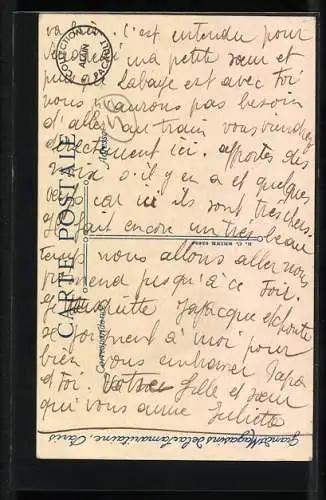 va bien. C'est entendu pour
vendredi ma petite sœur et
si de Labaye est avec toi
nous n'aurons pas besoin
d'aller au train vous viendrez
directement ici. apportez des
noix s'il y en a et quelques
car ici ils sont très chers
fait encore un très beau
temps nous allons aller nous
jusqu'à ce soir.
Je quitte
se joignent à moi pour
bien vous embrasser Papa
et toi. Votre fille et sœur
qui vous aime Juliette
CARTE POSTALE
Correspondance
Adresse
COLLECTION
ALAIN
PACAULT
58
R. C. SEINE
Grands Magasins de la Samaritaine, Paris